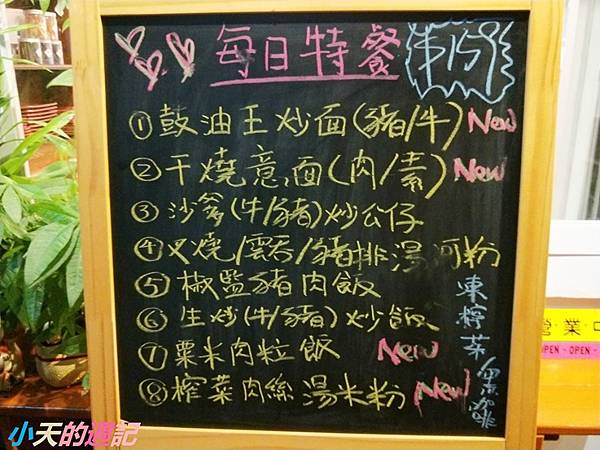 每日特餐 $15份
①鼓油王炒面(豬/牛) New
②干燒意面(肉/素) New
③沙爹(牛/豬)炒公仔
④叉燒/雲吞/豬排湯河粉
⑤椒監豬肉飯
⑥生炒(牛/豬)炒飯
⑦粟米肉粒飯 New
⑧榨菜肉絲湯米粉 New
東檸茶/黑咖啡
營業中
OPEN · OPEN
小天的週記